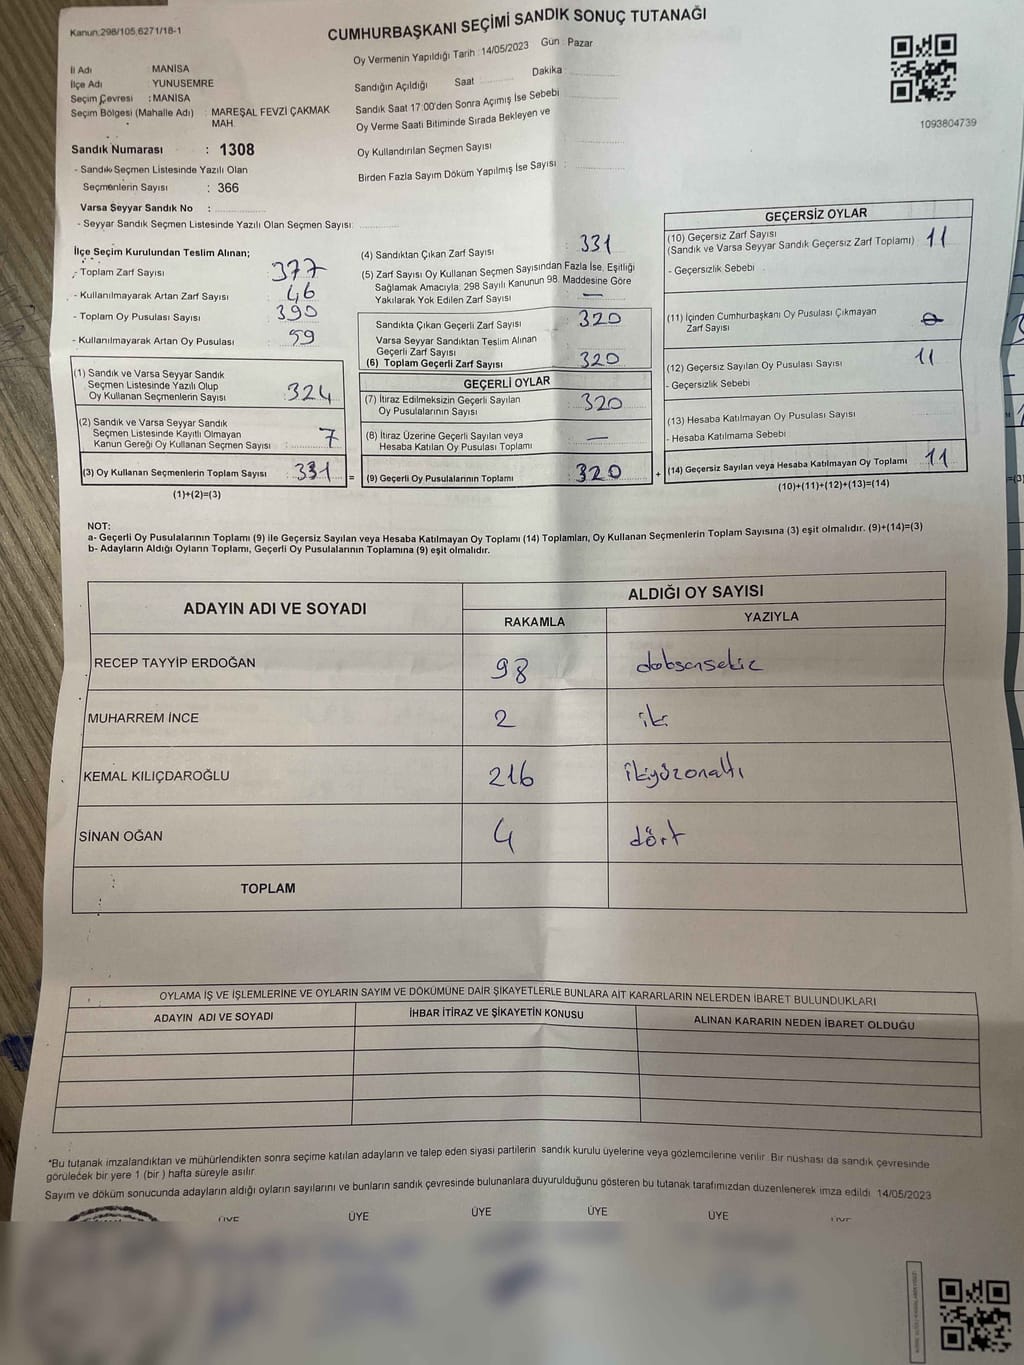 Kanun:298/105,6271/18-1
CUMHURBAŞKANI SEÇİMİ SANDIK SONUÇ TUTANAĞI
Oy Vermenin Yapıldığı Tarih : 14/05/2023 Gün : Pazar
İl Adı : MANİSA
İlçe Adı : YUNUSEMRE
Seçim Çevresi : MANİSA
Seçim Bölgesi (Mahalle Adı) : MAREŞAL FEVZİ ÇAKMAK
MAH.
Sandık Numarası : 1308
- Sandık Seçmen Listesinde Yazılı Olan
Seçmenlerin Sayısı : 366
Varsa Seyyar Sandık No :
- Seyyar Sandık Seçmen Listesinde Yazılı Olan Seçmen Sayısı:
Sandığın Açıldığı Saat Dakika
Sandık Saat 17:00'den Sonra Açımış İse Sebebi
Oy Verme Saati Bitiminde Sırada Bekleyen ve
Oy Kullandırılan Seçmen Sayısı
Birden Fazla Sayım Döküm Yapılmış İse Sayısı :
1093804739
İlçe Seçim Kurulundan Teslim Alınan;
- Toplam Zarf Sayısı : 377
- Kullanılmayarak Artan Zarf Sayısı : 46
- Toplam Oy Pusulası Sayısı : 390
- Kullanılmayarak Artan Oy Pusulası : 59
(1) Sandık ve Varsa Seyyar Sandık
Seçmen Listesinde Yazılı Olup
Oy Kullanan Seçmenlerin Sayısı : 324
(2) Sandık ve Varsa Seyyar Sandık
Seçmen Listesinde Kayıtlı Olmayan
Kanun Gereği Oy Kullanan Seçmen Sayısı : 7
(3) Oy Kullanan Seçmenlerin Toplam Sayısı : 331 =
(1)+(2)=(3)
(4) Sandıktan Çıkan Zarf Sayısı : 331
(5) Zarf Sayısı Oy Kullanan Seçmen Sayısından Fazla İse, Eşitliği
Sağlamak Amacıyla, 298 Sayılı Kanunun 98. Maddesine Göre
Yakılarak Yok Edilen Zarf Sayısı : —
Sandıkta Çıkan Geçerli Zarf Sayısı : 320
Varsa Seyyar Sandıktan Teslim Alınan
Geçerli Zarf Sayısı
(6) Toplam Geçerli Zarf Sayısı : 320
GEÇERLİ OYLAR
(7) İtiraz Edilmeksizin Geçerli Sayılan
Oy Pusulalarının Sayısı : 320
(8) İtiraz Üzerine Geçerli Sayılan veya
Hesaba Katılan Oy Pusulası Toplamı : —
(9) Geçerli Oy Pusulalarının Toplamı : 320 +
GEÇERSİZ OYLAR
(10) Geçersiz Zarf Sayısı
(Sandık ve Varsa Seyyar Sandık Geçersiz Zarf Toplamı) 11
- Geçersizlik Sebebi :
(11) İçinden Cumhurbaşkanı Oy Pusulası Çıkmayan
Zarf Sayısı
(12) Geçersiz Sayılan Oy Pusulası Sayısı : 11
- Geçersizlik Sebebi
(13) Hesaba Katılmayan Oy Pusulası Sayısı
- Hesaba Katılmama Sebebi
(14) Geçersiz Sayılan veya Hesaba Katılmayan Oy Toplamı : 11
(10)+(11)+(12)+(13)=(14)
NOT:
a- Geçerli Oy Pusulalarının Toplamı (9) ile Geçersiz Sayılan veya Hesaba Katılmayan Oy Toplamı (14) Toplamları, Oy Kullanan Seçmenlerin Toplam Sayısına (3) eşit olmalıdır. (9)+(14)=(3)
b- Adayların Aldığı Oyların Toplamı, Geçerli Oy Pusulalarının Toplamına (9) eşit olmalıdır.
ADAYIN ADI VE SOYADI
ALDIĞI OY SAYISI
RAKAMLA YAZIYLA
RECEP TAYYİP ERDOĞAN 98 doksansekiz
MUHARREM İNCE 2 iki
KEMAL KILIÇDAROĞLU 216 ikiyüzonaltı
SİNAN OĞAN 4 dört
TOPLAM
OYLAMA İŞ VE İŞLEMLERİNE VE OYLARIN SAYIM VE DÖKÜMÜNE DAİR ŞİKAYETLERLE BUNLARA AİT KARARLARIN NELERDEN İBARET BULUNDUKLARI
ADAYIN ADI VE SOYADI İHBAR İTİRAZ VE ŞİKAYETİN KONUSU ALINAN KARARIN NEDEN İBARET OLDUĞU
*Bu tutanak imzalandıktan ve mühürlendikten sonra seçime katılan adayların ve talep eden siyasi partilerin sandık kurulu üyelerine veya gözlemcilerine verilir. Bir nushası da sandık çevresinde
görülecek bir yere 1 (bir ) hafta süreyle asılır.
Sayım ve döküm sonucunda adayların aldığı oyların sayılarını ve bunların sandık çevresinde bulunanlara duyurulduğunu gösteren bu tutanak tarafımızdan düzenlenerek imza edildi 14/05/2023
ÜYE ÜYE ÜYE ÜYE ÜYE